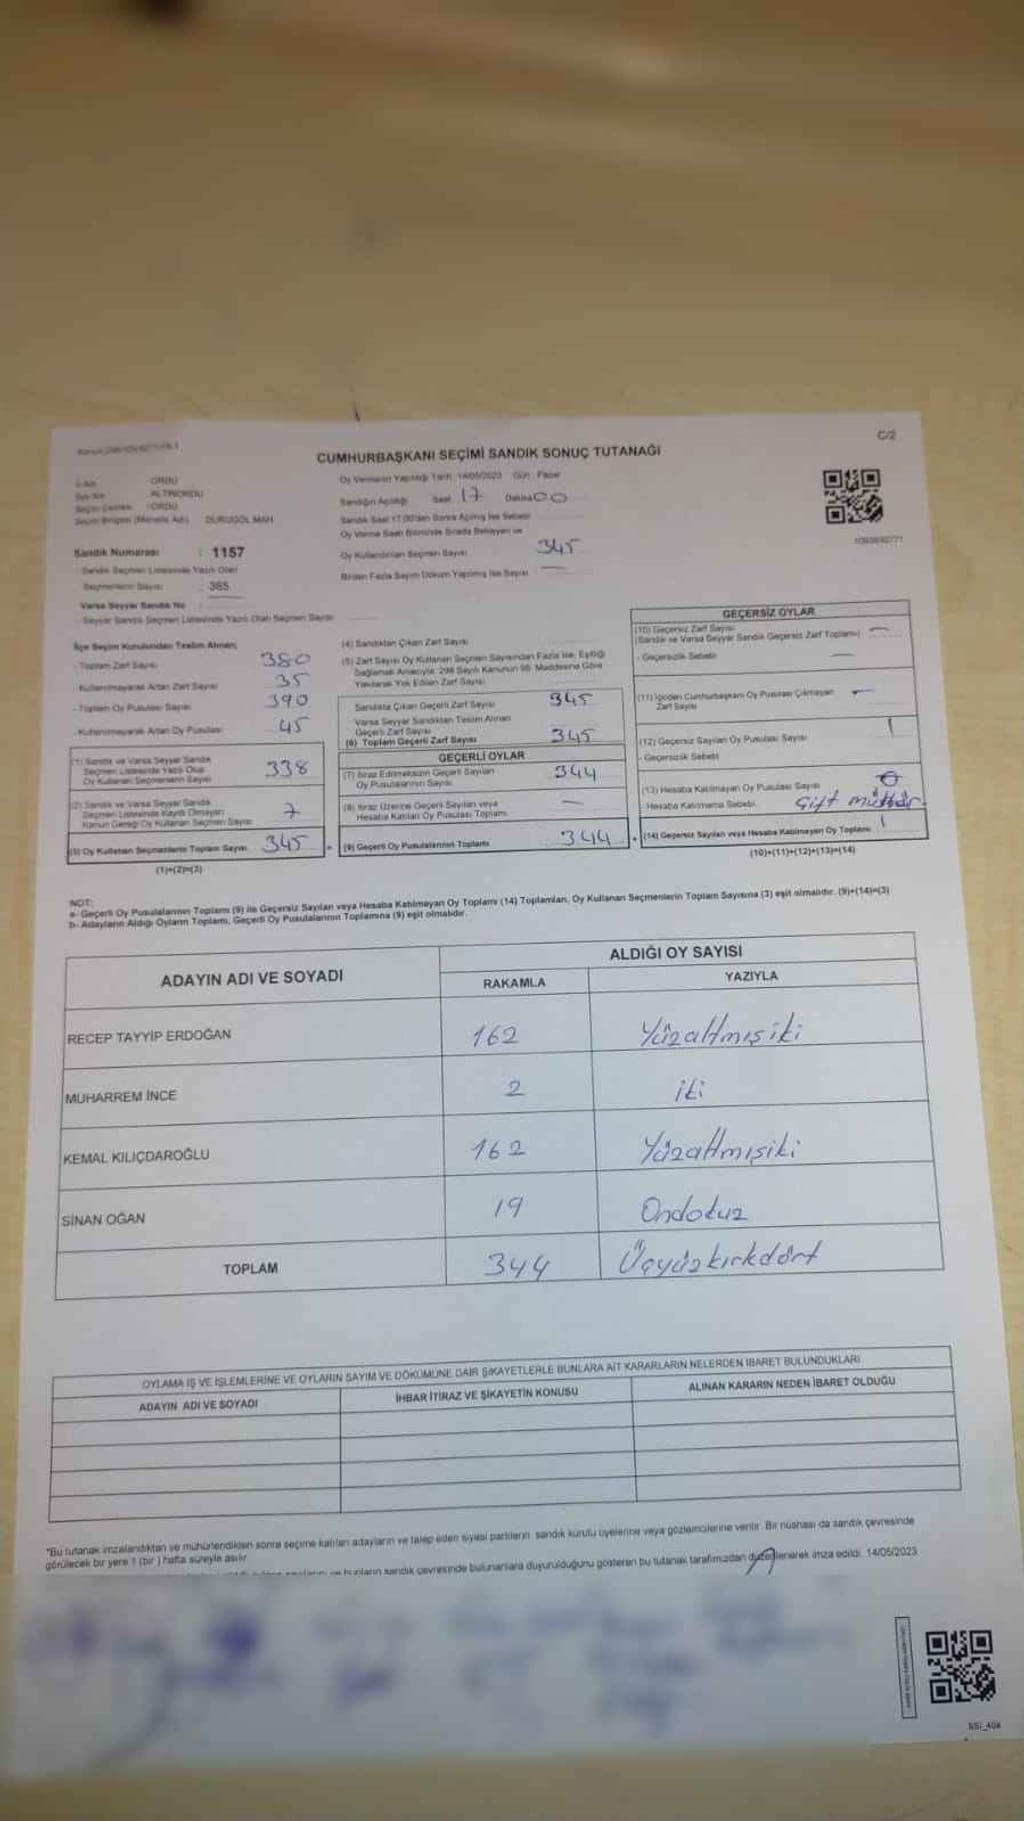 C/2
CUMHURBAŞKANI SEÇİMİ SANDIK SONUÇ TUTANAĞI
ORDU
ALTINORDU
ORDU
DURUGÖL MAH
Oy Vermenin Yapıldığı Tarih 14/05/2023 Gün: Pazar
Sandığın Açıldığı Saat 17 Dakika 00
Sandık Saat 17.00'den Sonra Açılmış İse Sebebi
Oy Verme Saati Bitiminde Sırada Bekleyen ve
Oy Kullandırılan Seçmen Sayısı 345
Birden Fazla Sayım Döküm Yapılmış İse Sayısı —
Sandık Numarası : 1157
Sandık Seçmen Listesinde Yazılı Olan
Seçmenlerin Sayısı : 385
Varsa Seyyar Sandık No :
- Seyyar Sandık Seçmen Listesinde Yazılı Olan Seçmen Sayısı
İlçe Seçim Kurulundan Teslim Alınan;
- Toplam Zarf Sayısı 380
- Kullanılmayarak Artan Zarf Sayısı 35
- Toplam Oy Pusulası Sayısı 390
- Kullanılmayarak Artan Oy Pusulası 45
(1) Sandık ve Varsa Seyyar Sandık
Seçmen Listesinde Yazılı Olup
Oy Kullanan Seçmenlerin Sayısı 338
(2) Sandık ve Varsa Seyyar Sandık
Seçmen Listesinde Kayıtlı Olmayan
Kanun Gereği Oy Kullanan Seçmen Sayısı 7
(3) Oy Kullanan Seçmenlerin Toplam Sayısı 345
(1)+(2)=(3)
(4) Sandıktan Çıkan Zarf Sayısı
(5) Zarf Sayısı Oy Kullanan Seçmen Sayısından Fazla İse, Eşitliği
Sağlamak Amacıyla, 298 Sayılı Kanunun 98. Maddesine Göre
Yakılarak Yok Edilen Zarf Sayısı
Sandıkta Çıkan Geçerli Zarf Sayısı 345
Varsa Seyyar Sandıktan Teslim Alınan
Geçerli Zarf Sayısı
(6) Toplam Geçerli Zarf Sayısı 345
GEÇERLİ OYLAR
(7) İtiraz Edilmeksizin Geçerli Sayılan
Oy Pusulalarının Sayısı 344
(8) İtiraz Üzerine Geçerli Sayılan veya
Hesaba Katılan Oy Pusulası Toplamı —
(9) Geçerli Oy Pusulalarının Toplamı 344
GEÇERSİZ OYLAR
(10) Geçersiz Zarf Sayısı —
(Sandık ve Varsa Seyyar Sandık Geçersiz Zarf Toplamı)
- Geçersizlik Sebebi —
(11) İçinden Cumhurbaşkanı Oy Pusulası Çıkmayan
Zarf Sayısı —
(12) Geçersiz Sayılan Oy Pusulası Sayısı 1
- Geçersizlik Sebebi
(13) Hesaba Katılmayan Oy Pusulası Sayısı
- Hesaba Katılmama Sebebi Çift mühür
(14) Geçersiz Sayılan veya Hesaba Katılmayan Oy Toplamı 1
(10)+(11)+(12)+(13)=(14)
NOT:
a- Geçerli Oy Pusulalarının Toplamı (9) ile Geçersiz Sayılan veya Hesaba Katılmayan Oy Toplamı (14) Toplamları, Oy Kullanan Seçmenlerin Toplam Sayısına (3) eşit olmalıdır. (9)+(14)=(3)
b- Adayların Aldığı Oyların Toplamı, Geçerli Oy Pusulalarının Toplamına (9) eşit olmalıdır.
ADAYIN ADI VE SOYADI
ALDIĞI OY SAYISI
RAKAMLA YAZIYLA
RECEP TAYYİP ERDOĞAN 162 Yüzaltmışiki
MUHARREM İNCE 2 iki
KEMAL KILIÇDAROĞLU 162 Yüzaltmışiki
SİNAN OĞAN 19 Ondokuz
TOPLAM 344 Üçyüzkırkdört
OYLAMA İŞ VE İŞLEMLERİNE VE OYLARIN SAYIM VE DÖKÜMÜNE DAİR ŞİKAYETLERLE BUNLARA AİT KARARLARIN NELERDEN İBARET BULUNDUKLARI
ADAYIN ADI VE SOYADI İHBAR İTİRAZ VE ŞİKAYETİN KONUSU ALINAN KARARIN NEDEN İBARET OLDUĞU
*Bu tutanak imzalandıktan ve mühürlendikten sonra seçime katılan adayların ve talep eden siyasi partilerin sandık kurulu üyelerine veya gözlemcilerine verilir. Bir nüshası da sandık çevresinde
görülecek bir yere 1 (bir) hafta süreyle asılır.
bunların sandık çevresinde bulunanlara duyurulduğunu gösteren bu tutanak tarafımızdan düzenlenerek imza edildi. 14/05/2023